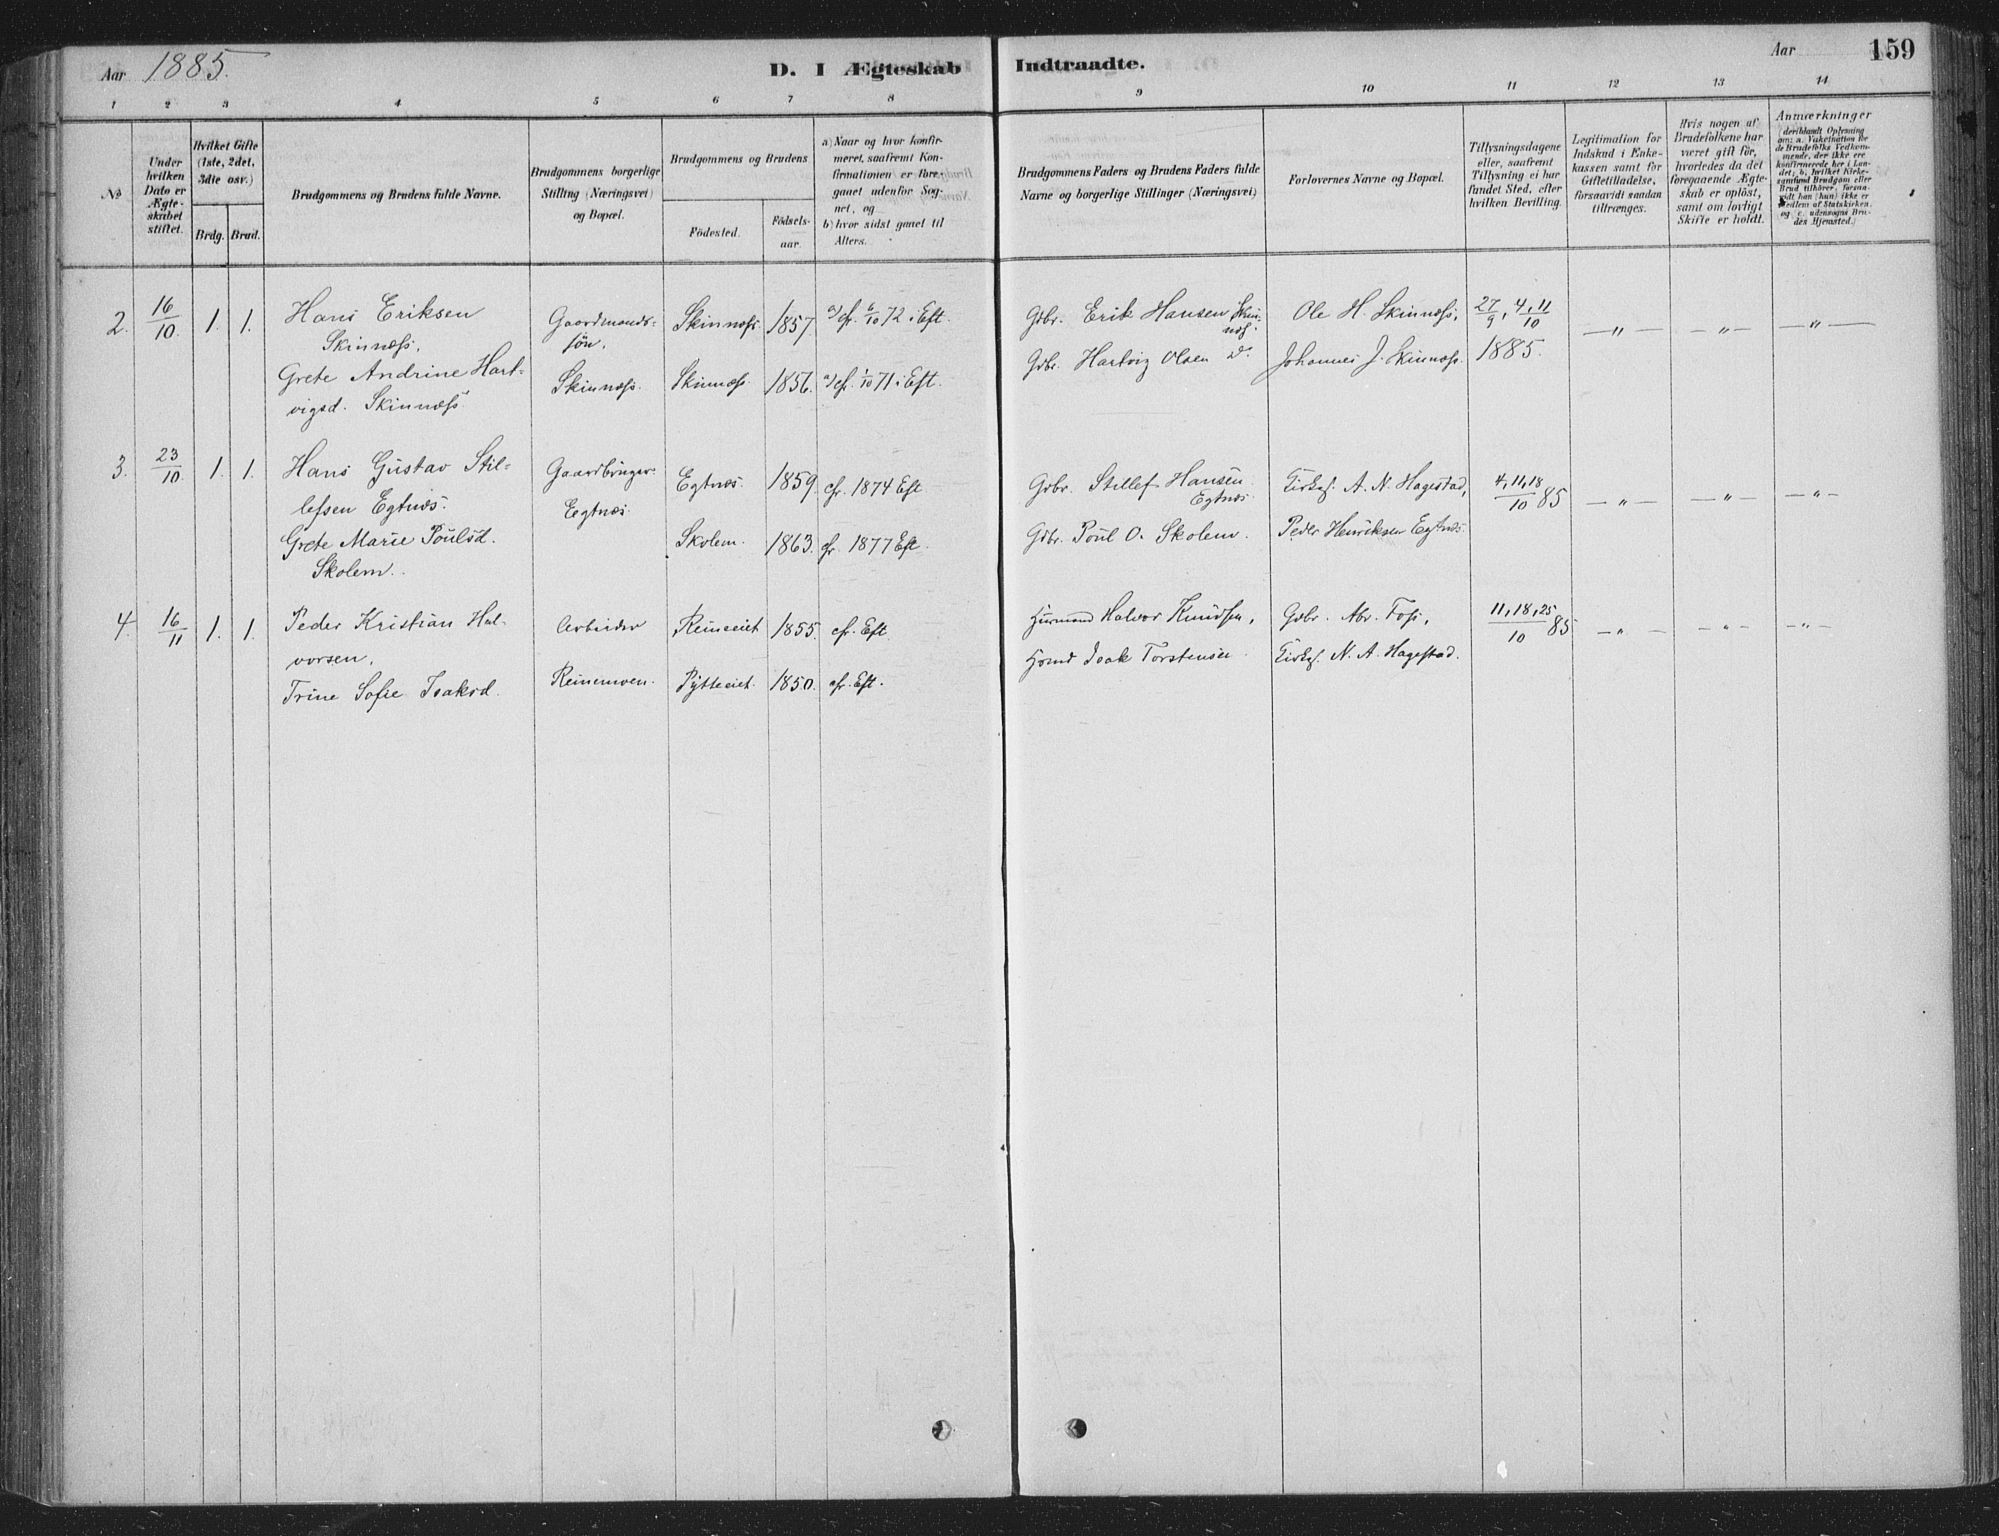 Aar 1885.
D. I Ægteskab Indtraadte.
Aar 159
1 2 3 4 5 6 7 8 9 10 11 12 13 14
No
Under hvilken Dato er Ægteskabet stiftet.
Hvilket Gifte (1ste, 2det, 3die osv.)
Brdg. Brud.
Brudgommens og Brudens fulde Navne.
Brudgommens borgerlige Stilling (Næringsvei) og Bopæl.
Brudgommens og Brudens
Födested.
Födselsaar.
a) Naar og hvor konfirmeret, saafremt Konfirmationen er foregaaet udenfor Sognet, og
b) hvor sidst gaaet til Alters.
Brudgommens Faders og Brudens Faders fulde Navne og borgerlige Stillinger (Næringsvei)
Forlovernes Navne og Bopæl.
Tillysningsdagene eller, saafremt Tillysning ei har fundet Sted, efter hvilken Bevilling.
Legitimation for Indskud i Enkekassen samt for Giftetilladelse, forsaavidt saadan tiltrænges.
Hvis nogen af Brudefolkene har været gift för, hvorledes da det foregaaende Ægteskab er oplöst, samt om lovligt Skifte er holdt.
Anmærkninger (deriblandt Oplysning om: a. Vakcination for de Brudefolks Vedkommende, der ikke ere konfirmerede her i Landet; b. hvilket Kirkesamfund Brudgom eller Brud tilhörer, forsaavidt han (hun) ikke er Medlem af Statskirken, og c. udensogns Brudes Hjemsted.)
2. 16/10 1. 1. Hans Eriksen Skinnæss. Gaardmandssön. Skinnæss. 1857. a) cfr. 6/10 72 i Eft. Gdbr. Erik Hansen Skinnæs. Ole H. Skinnæss, 27/9, 4, 11/10 1885. —„— —„— —„—
Grete Andrine Hartvigsd. Skinnæss. Skinnæss. Skinnæss 1856. a) cfr. 1/10 71 i Eft. Gdbr. Hartvig Olsen do. Johannes J. Skinnæss.
3. 23/10 1. 1. Hans Gustav Stillefsen Egtnæs. Gaardbruger Egtnæs Egtnæs. 1859. cfr. 1874 Eft Gdbr. Stillef Hansen Egtnæs Kirkes. A. N. Hagestad, 4, 11, 18/10 85 —„— —„— —„—
Grete Marie Poulsd. Skolem. Skolem. 1863. cfr. 1877 Eft. Gdbr. Poul O. Skolem. Peder Henriksen Egtnæs.
4 16/11 1. 1. Peder Kristian Halvorsen. Arbeider 1855. cfr. Eft. Husmand Halvor Knudsen, Gdbr. Abr. Foss, 11, 18, 25/10 85 —„— —„— —„—
Trine Sofie Isaksd. Reinemoen. 1850. cfr. Eft. Hsmd Isak Torstensen Kirkes. N. A. Hagestad.